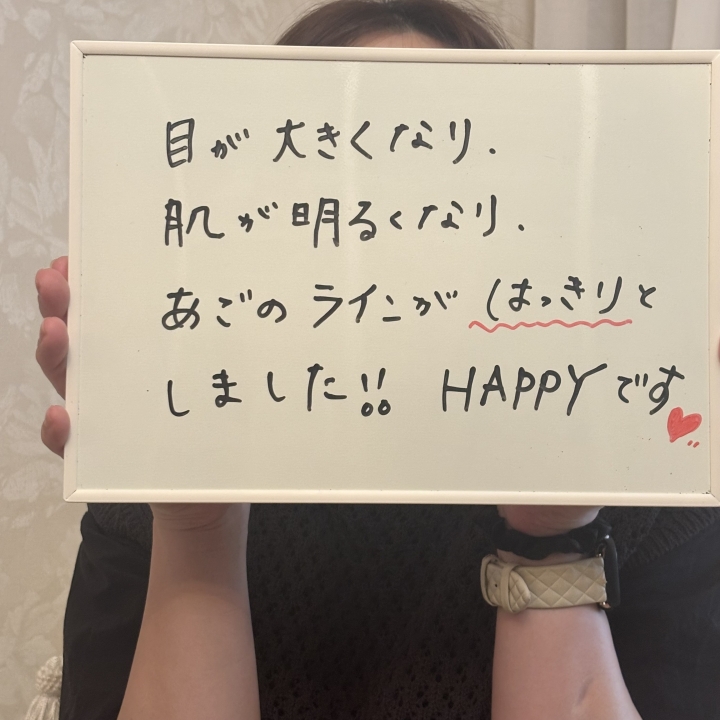 目が大きくなり.
肌が明るくなり.
あごのラインがはっきりと
しました!! HAPPYです